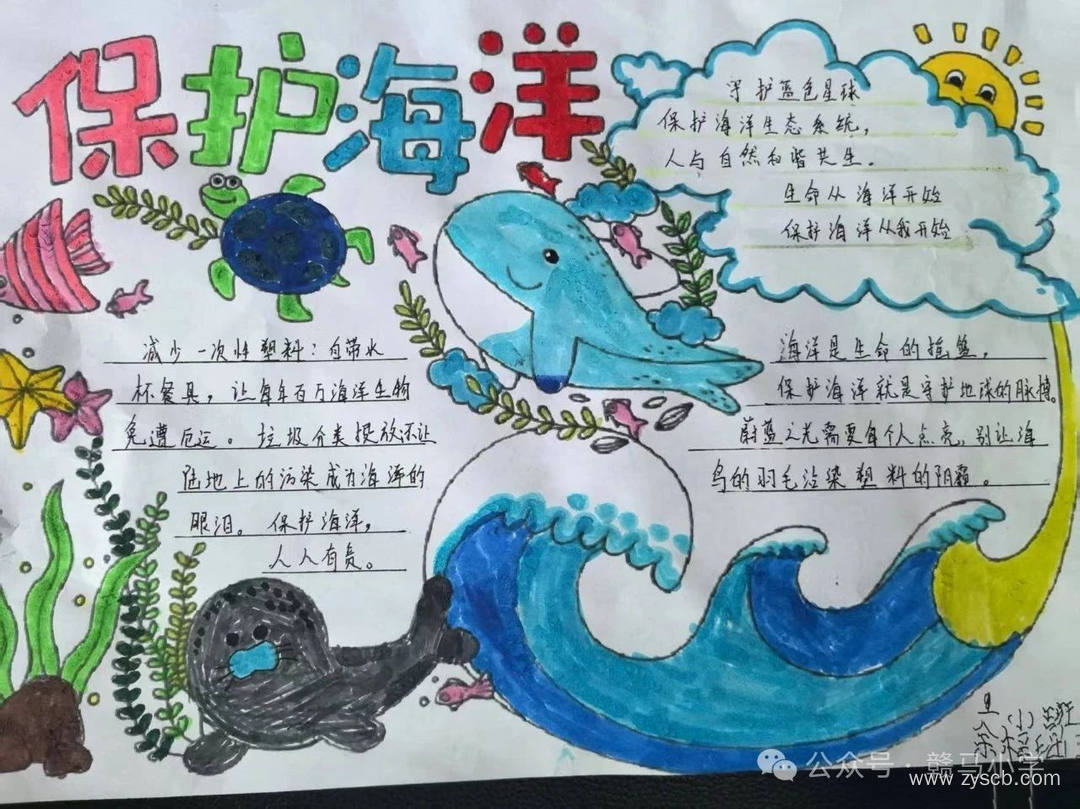 保护海洋
守护蓝色星球
保护海洋生态系统，
人与自然和谐共生。
生命从海洋开始
保护海洋从我开始
减少一次性塑料：自带水
杯餐具，让每年百万海洋生物
免遭厄运。垃圾分类投放不让
陆地上的污染成为海洋的
眼泪。保护海洋，
人人有责。
海洋是生命的摇篮，
保护海洋就是守护地球的脉搏。
蔚蓝之光需要每个人点亮，别让海
鸟的羽毛沾染塑料的阴霾。
公众号·赣马小学
www.zyscb.com